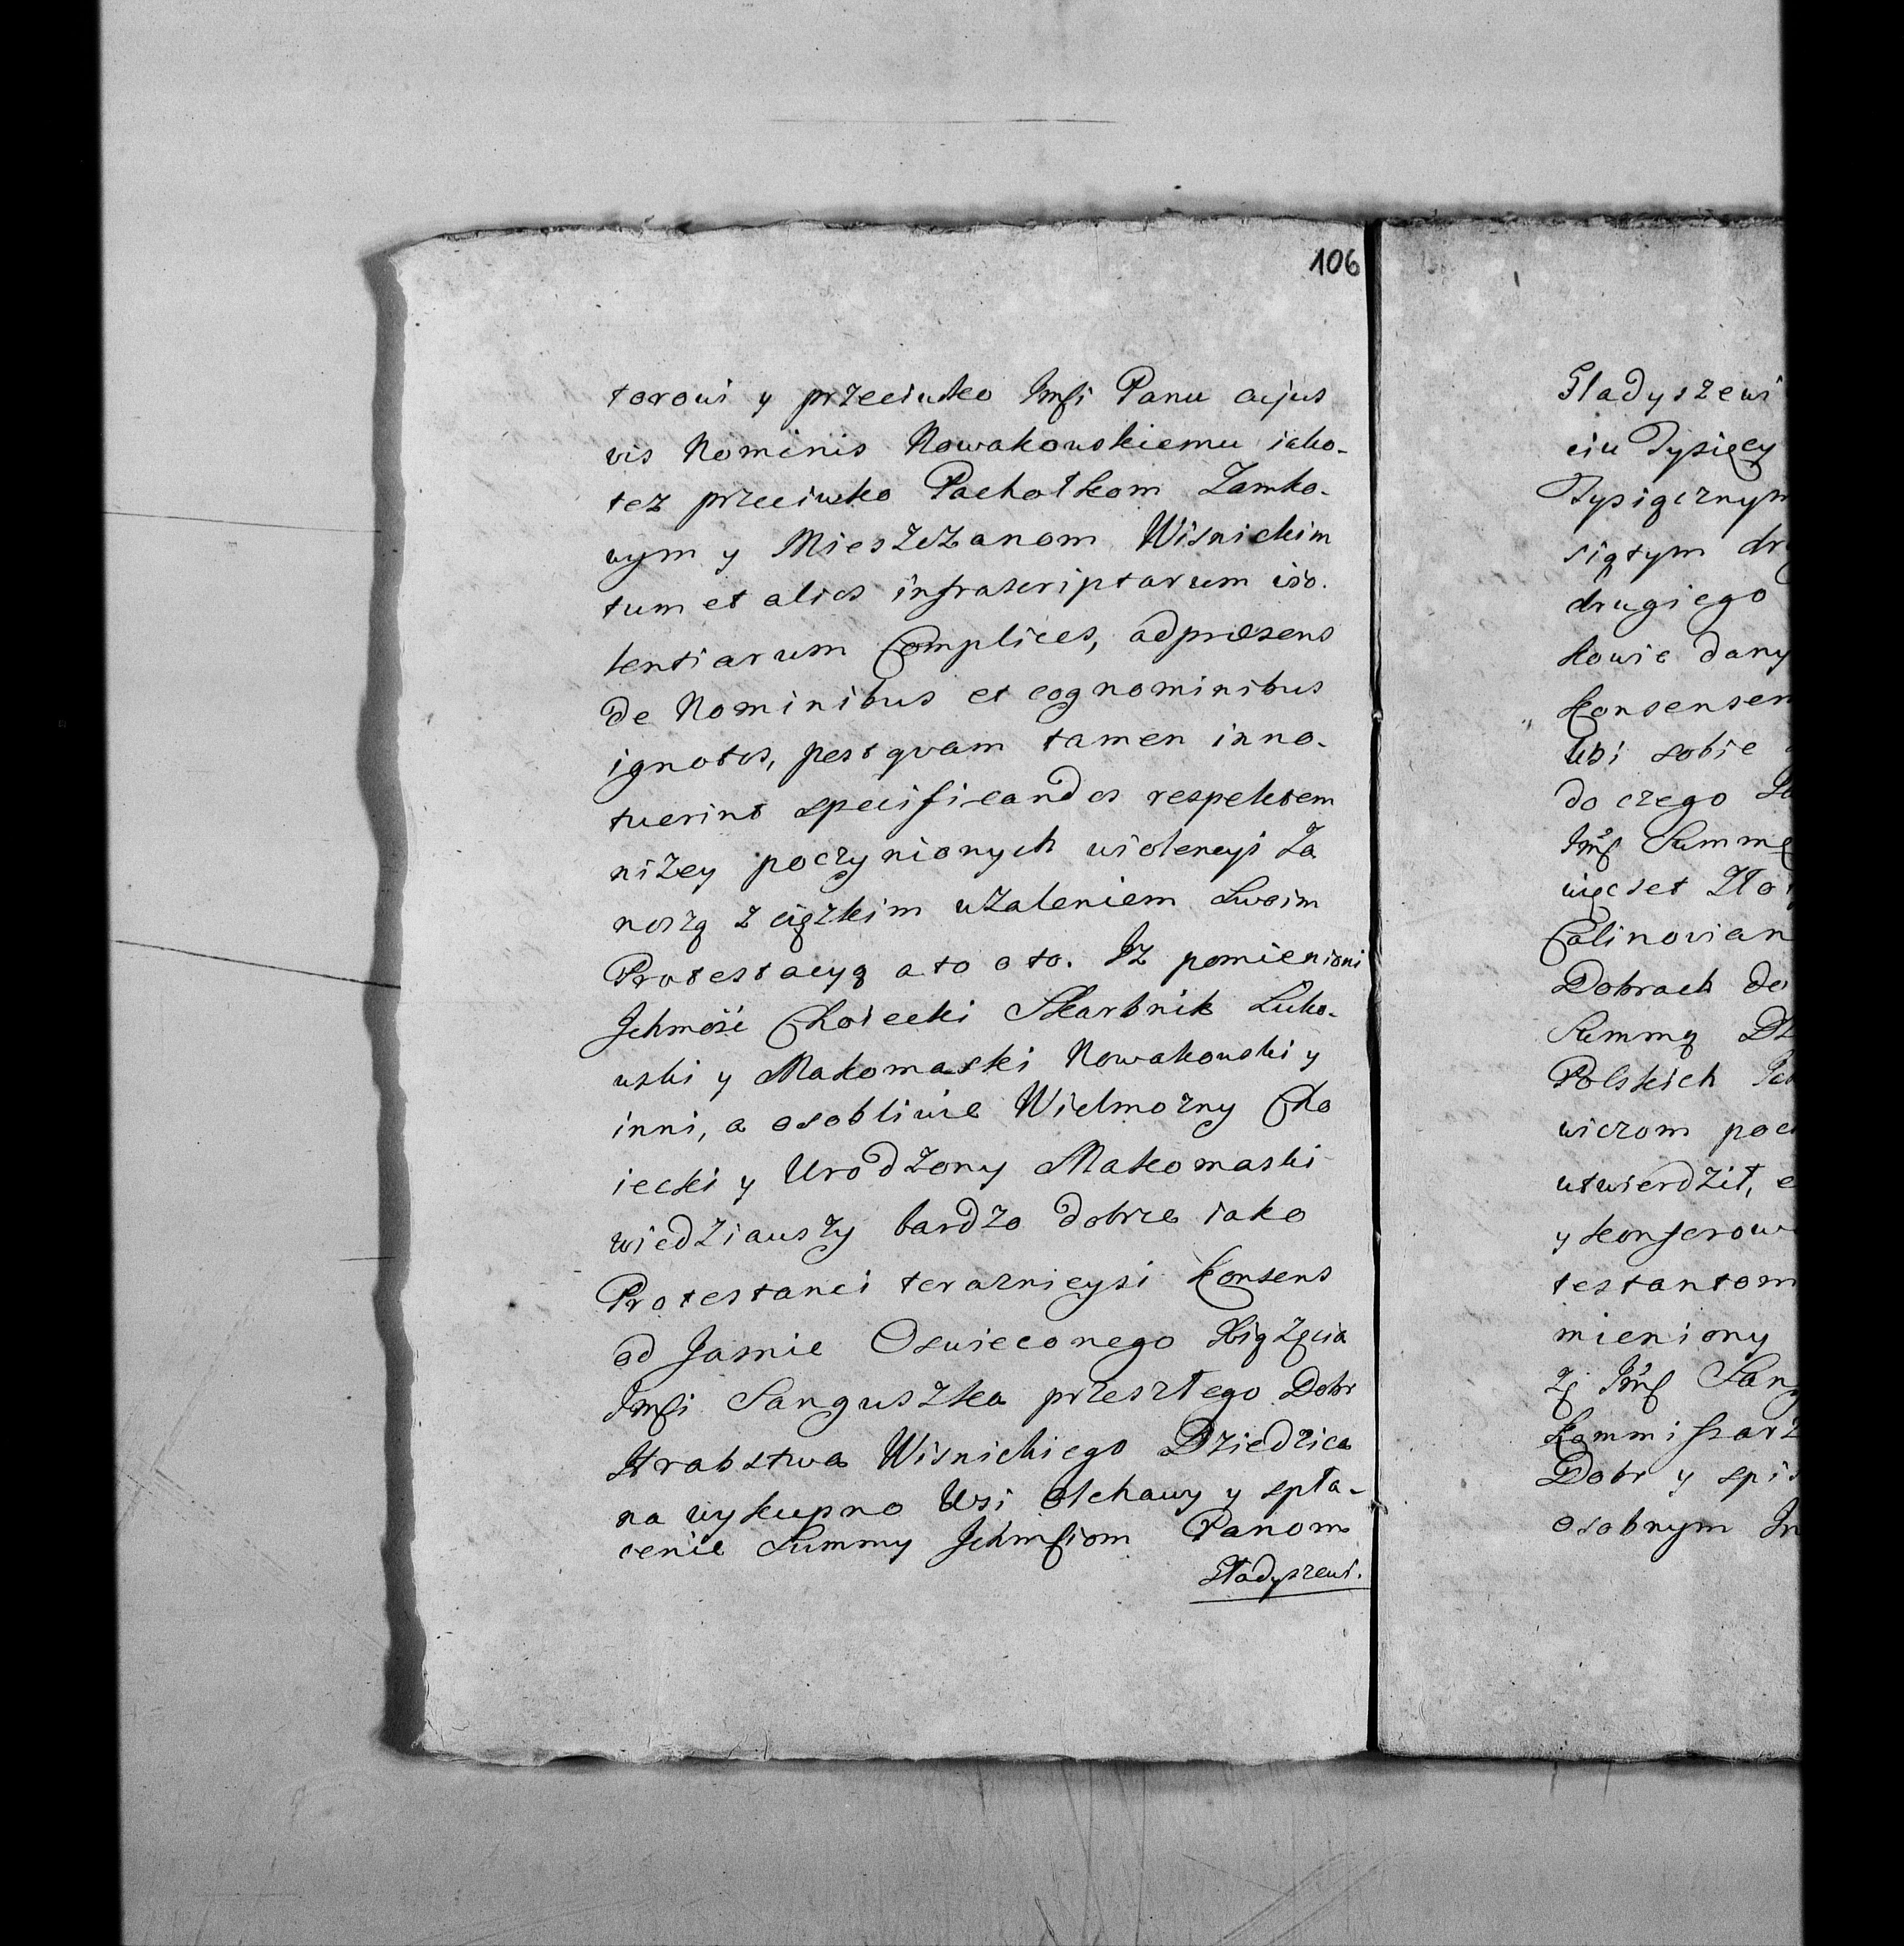 106
torowi y przeciwko Jmsci Panu cujus
vis Nominis Nowakowskiemu iako-
tez przeciwko Pachołkom Zamko-
wym y Mieszczanom Wisnickim
tum et alios infrascriptarum vio-
lentiarum Complices, ad præsens
de Nominibus et cognominibus
ignotos, postqvam tamen inno-
tuerint specificandos respektem
niżey poczynionych wiolencyi Za
noszą z ciężkim użaleniem Swoim
Protestacyą a to oto. Iż pomienioni
Ichmość Choiecki Skarbnik Łuko-
wski y Makomaski Nowakowski y
inni, a osobliwie Wielmozny Cho
iecki y Urodzony Makomaski
wiedziawszy bardzo dobrze iako
Protestanci teraznieysi Konsens
od Jasnie Oswieconego Xiążęcia
Jmsci Sanguszka przeszłego Dobr
Hrabstwa Wisnickiego Dziedzica
na wykupno Wsi Olchawy y spła-
cenie Summy Ichmsciom Panom
Gładyszewi.
Gladyszewi
ciu Tysięcy
Tysiącznym
siątym
drugiego
kowie dany
Konsensem
Wsi sobie
do czego
Jmsc Summę
więcset
Calinovian
Dobrach do
Summą
Polskich
wiczom
utwierdził,
y konferow
testantom
mieniony
Jmsc
Kommissarz
Dobr y
osobnym